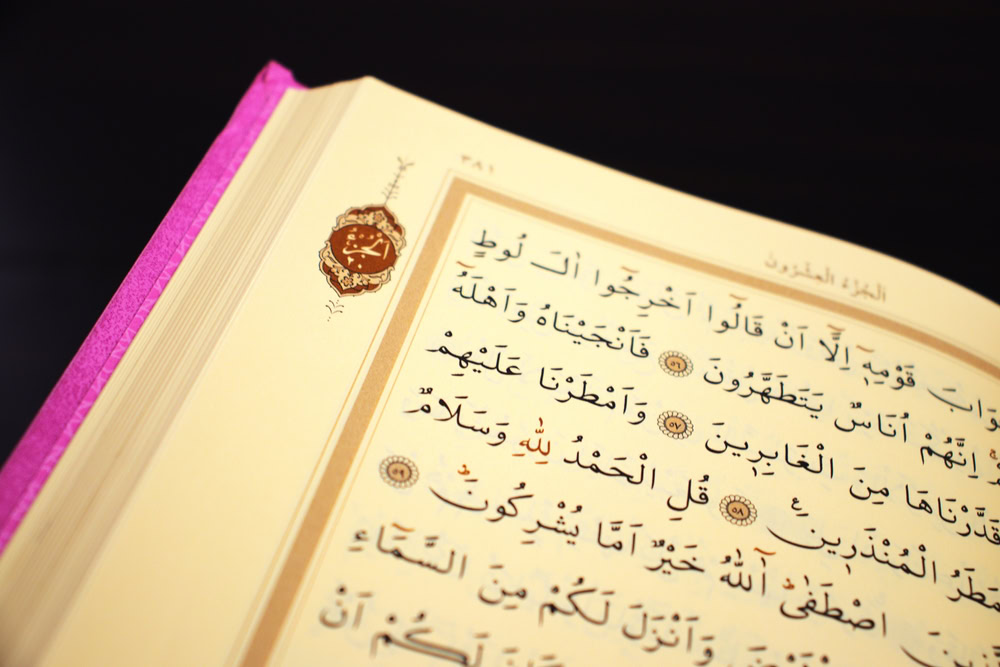 ٣٨١
اَلْجُزْءُ الْعِشْرُونَ
اَلْجُزْءُ
قَوْمِهٖٓ اِلَّٓا اَنْ قَالُٓوا اَخْرِجُٓوا اٰلَ لُوطٍ
اِنَّهُمْ اُنَاسٌ يَتَطَهَّرُونَ ٥٦ فَاَنْجَيْنَاهُ وَاَهْلَهُٓ
قَدَّرْنَاهَا مِنَ الْغَابِرٖينَ ٥٧ وَاَمْطَرْنَا عَلَيْهِمْ
مَطَرُ الْمُنْذَرٖينَ ٥٨ قُلِ الْحَمْدُ لِلّٰهِ وَسَلَامٌ
اصْطَفٰىۜ آٰللّٰهُ خَيْرٌ اَمَّا يُشْرِكُونَ ٥٩
وَاَنْزَلَ لَكُمْ مِنَ السَّمَٓاءِ
لَكُمْ اَنْ